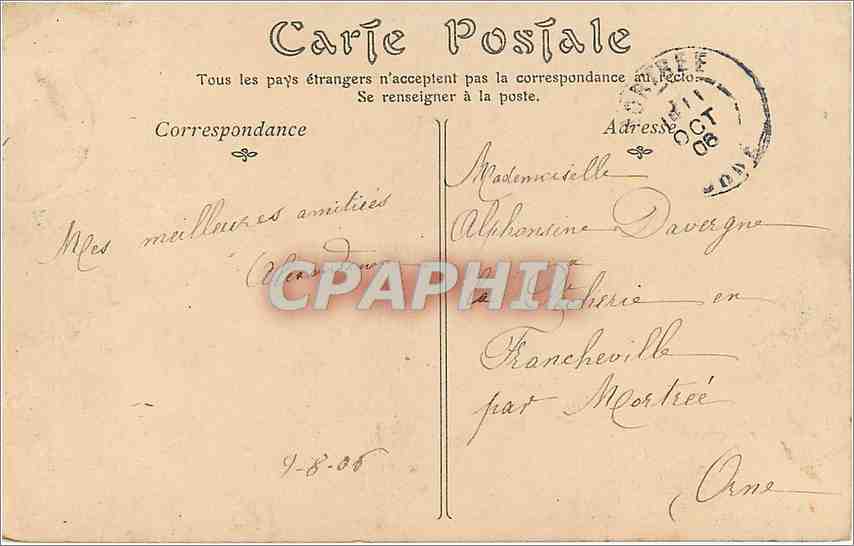 Carte Postale
Tous les pays étrangers n'acceptent pas la correspondance au recto.
Se renseigner à la poste.
Correspondance
Adresse
MORTRÉE
11
OCT
06
ORNE
Mes meilleures amitiés
9-8-06
Mademoiselle
Alphonsine Davergne
la en
Francheville
par Mortrée
Orne
CPAPHIL